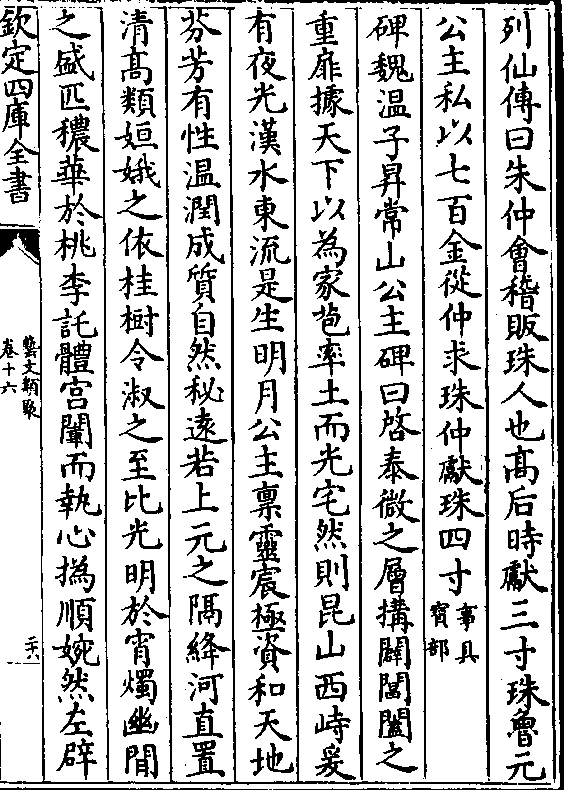 列仙傳曰朱仲會稽販珠人也髙后時獻三寸珠魯元
公主私以七百金從仲求珠仲獻珠四寸事具寳部
碑魏温子昇常山公主碑曰啓泰微之層搆闢閶闔之
重扉據天下以為家苞率土而光宅然則昆山西峙爰
有夜光漢水東流是生明月公主禀靈宸極資和天地
芬芳有性温潤成質自然秘逺若上元之隔絳河直置
清髙類姮娥之依桂樹令淑之至比光明於宵燭幽閒
之盛匹穠華於桃李託體宫闈而執心撝順婉然左辟
欽定四庫全書
藝文類聚
卷十六
二六